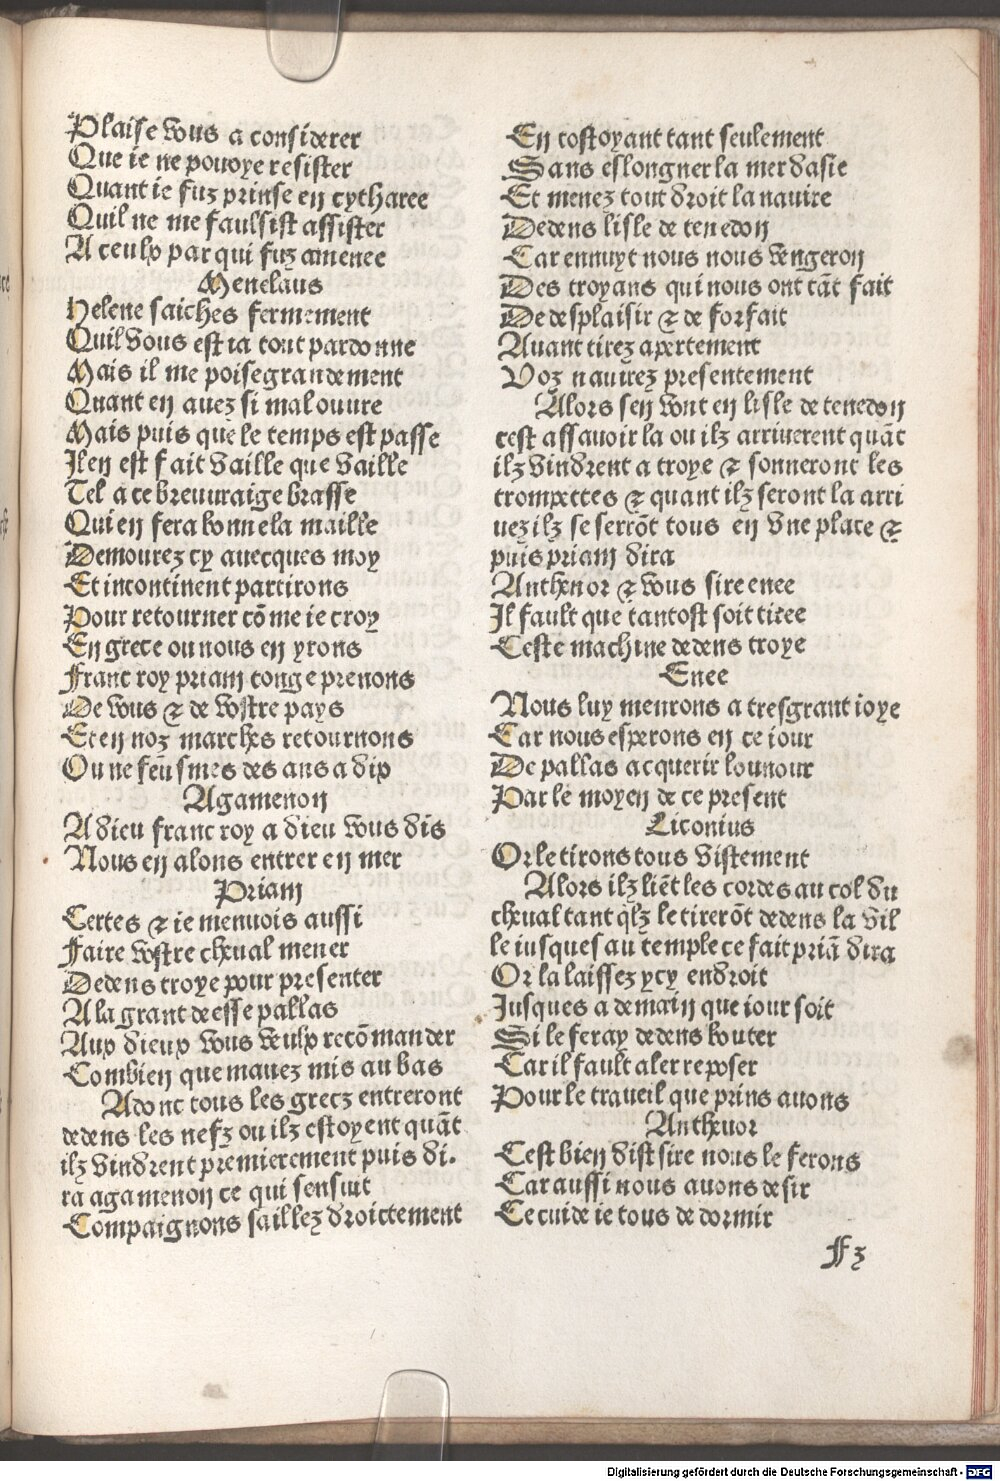 Plaise vous a considerer
Que ie ne pouoye resister
Quant ie fuz prinse en cytharee
Quil ne me faulsist assister
A ceulx par qui fuz amenee
Menelaus
Helene saiches fermement
Quil vous est ia tout pardonne
Mais il me poise grandement
Quant en auez si mal ouure
Mais puis que le temps est passe
Il en est fait vaille que vaille
Tel a ce breuuraige brasse
Qui en fera bonne la maille
Demourez cy auecques moy
Et incontinent partirons
Pour retourner cõme ie croy
En grece ou nous en yrons
Franc roy priam conge prenons
De vous & de vostre pays
Et en noz marches retournons
Ou ne feusmes des ans a dix
Agamenon
A dieu franc roy a dieu vous dis
Nous en alons entrer en mer
Priam
Certes & ie menuois aussi
Faire vostre cheual mener
Dedens troye pour presenter
A la grant deesse pallas
Aux dieux vous veulx recõmander
Combien que mauez mis au bas
Adonc tous les grecz entreront
dedens les nefz ou ilz estoyent quãt
ilz vindrent premierement puis di-
ra agamenon ce qui sensuit
Compaignons saillez droictement
En costoyant tant seulement
Sans eslongner la mer dasie
Et menez tout droit la nauire
Dedens lisle de tenedon
Car ennuyt nous nous vengeron
Des troyans qui nous ont tãt fait
De desplaisir & de forfait
Auant tirez apertement
Voz nauirez presentement
Alors sen vont en lisle de tenedon
cest assauoir la ou ilz arriuerent quãt
ilz vindrent a troye & sonneront les
trompettes & quant ilz seront la arri
uez ilz se serrõt tous en vne place &
puis priam dira
Anthenor & vous sire enee
Il fault que tantost soit tiree
Ceste machine dedens troye
Enee
Nous luy menrons a tresgrant ioye
Car nous esperons en ce iour
De pallas acquerir lounour
Par le moyen de ce present
Liconius
Or le tirons tous vistement
Alors ilz liẽt les cordes au col du
cheual tant qlz le tirerõt dedens la vil
le iusques au temple ce fait priã dira
Or la laissez ycy endroit
Iusques a demain que iour soit
Si le feray dedens bouter
Car il fault aler reposer
Pour le traueil que prins auons
Anthenor
Cest bien dist sire nous le ferons
Car aussi nous auons desir
Ce cuide ie tous de dormir
Fz
Digitalisierung gefördert durch die Deutsche Forschungsgemeinschaft - DFG